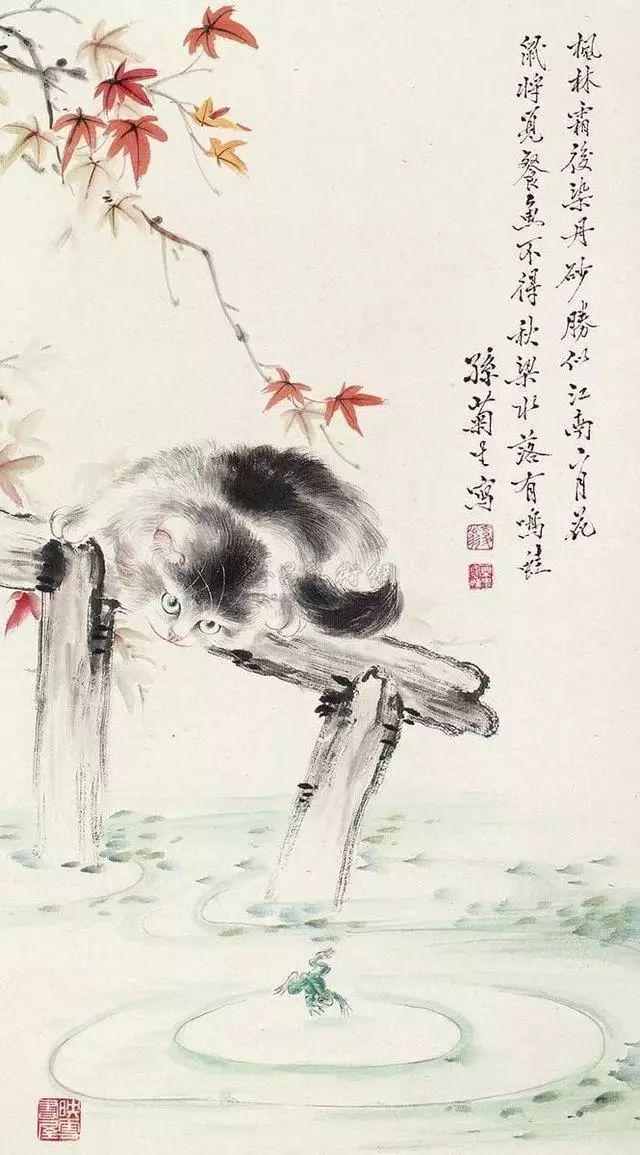 楓林霜後染丹砂勝似江南二月花
鼠將覓餐魚不得秋梁水落有鳴蛙
孫菊生寫
映雪
書屋